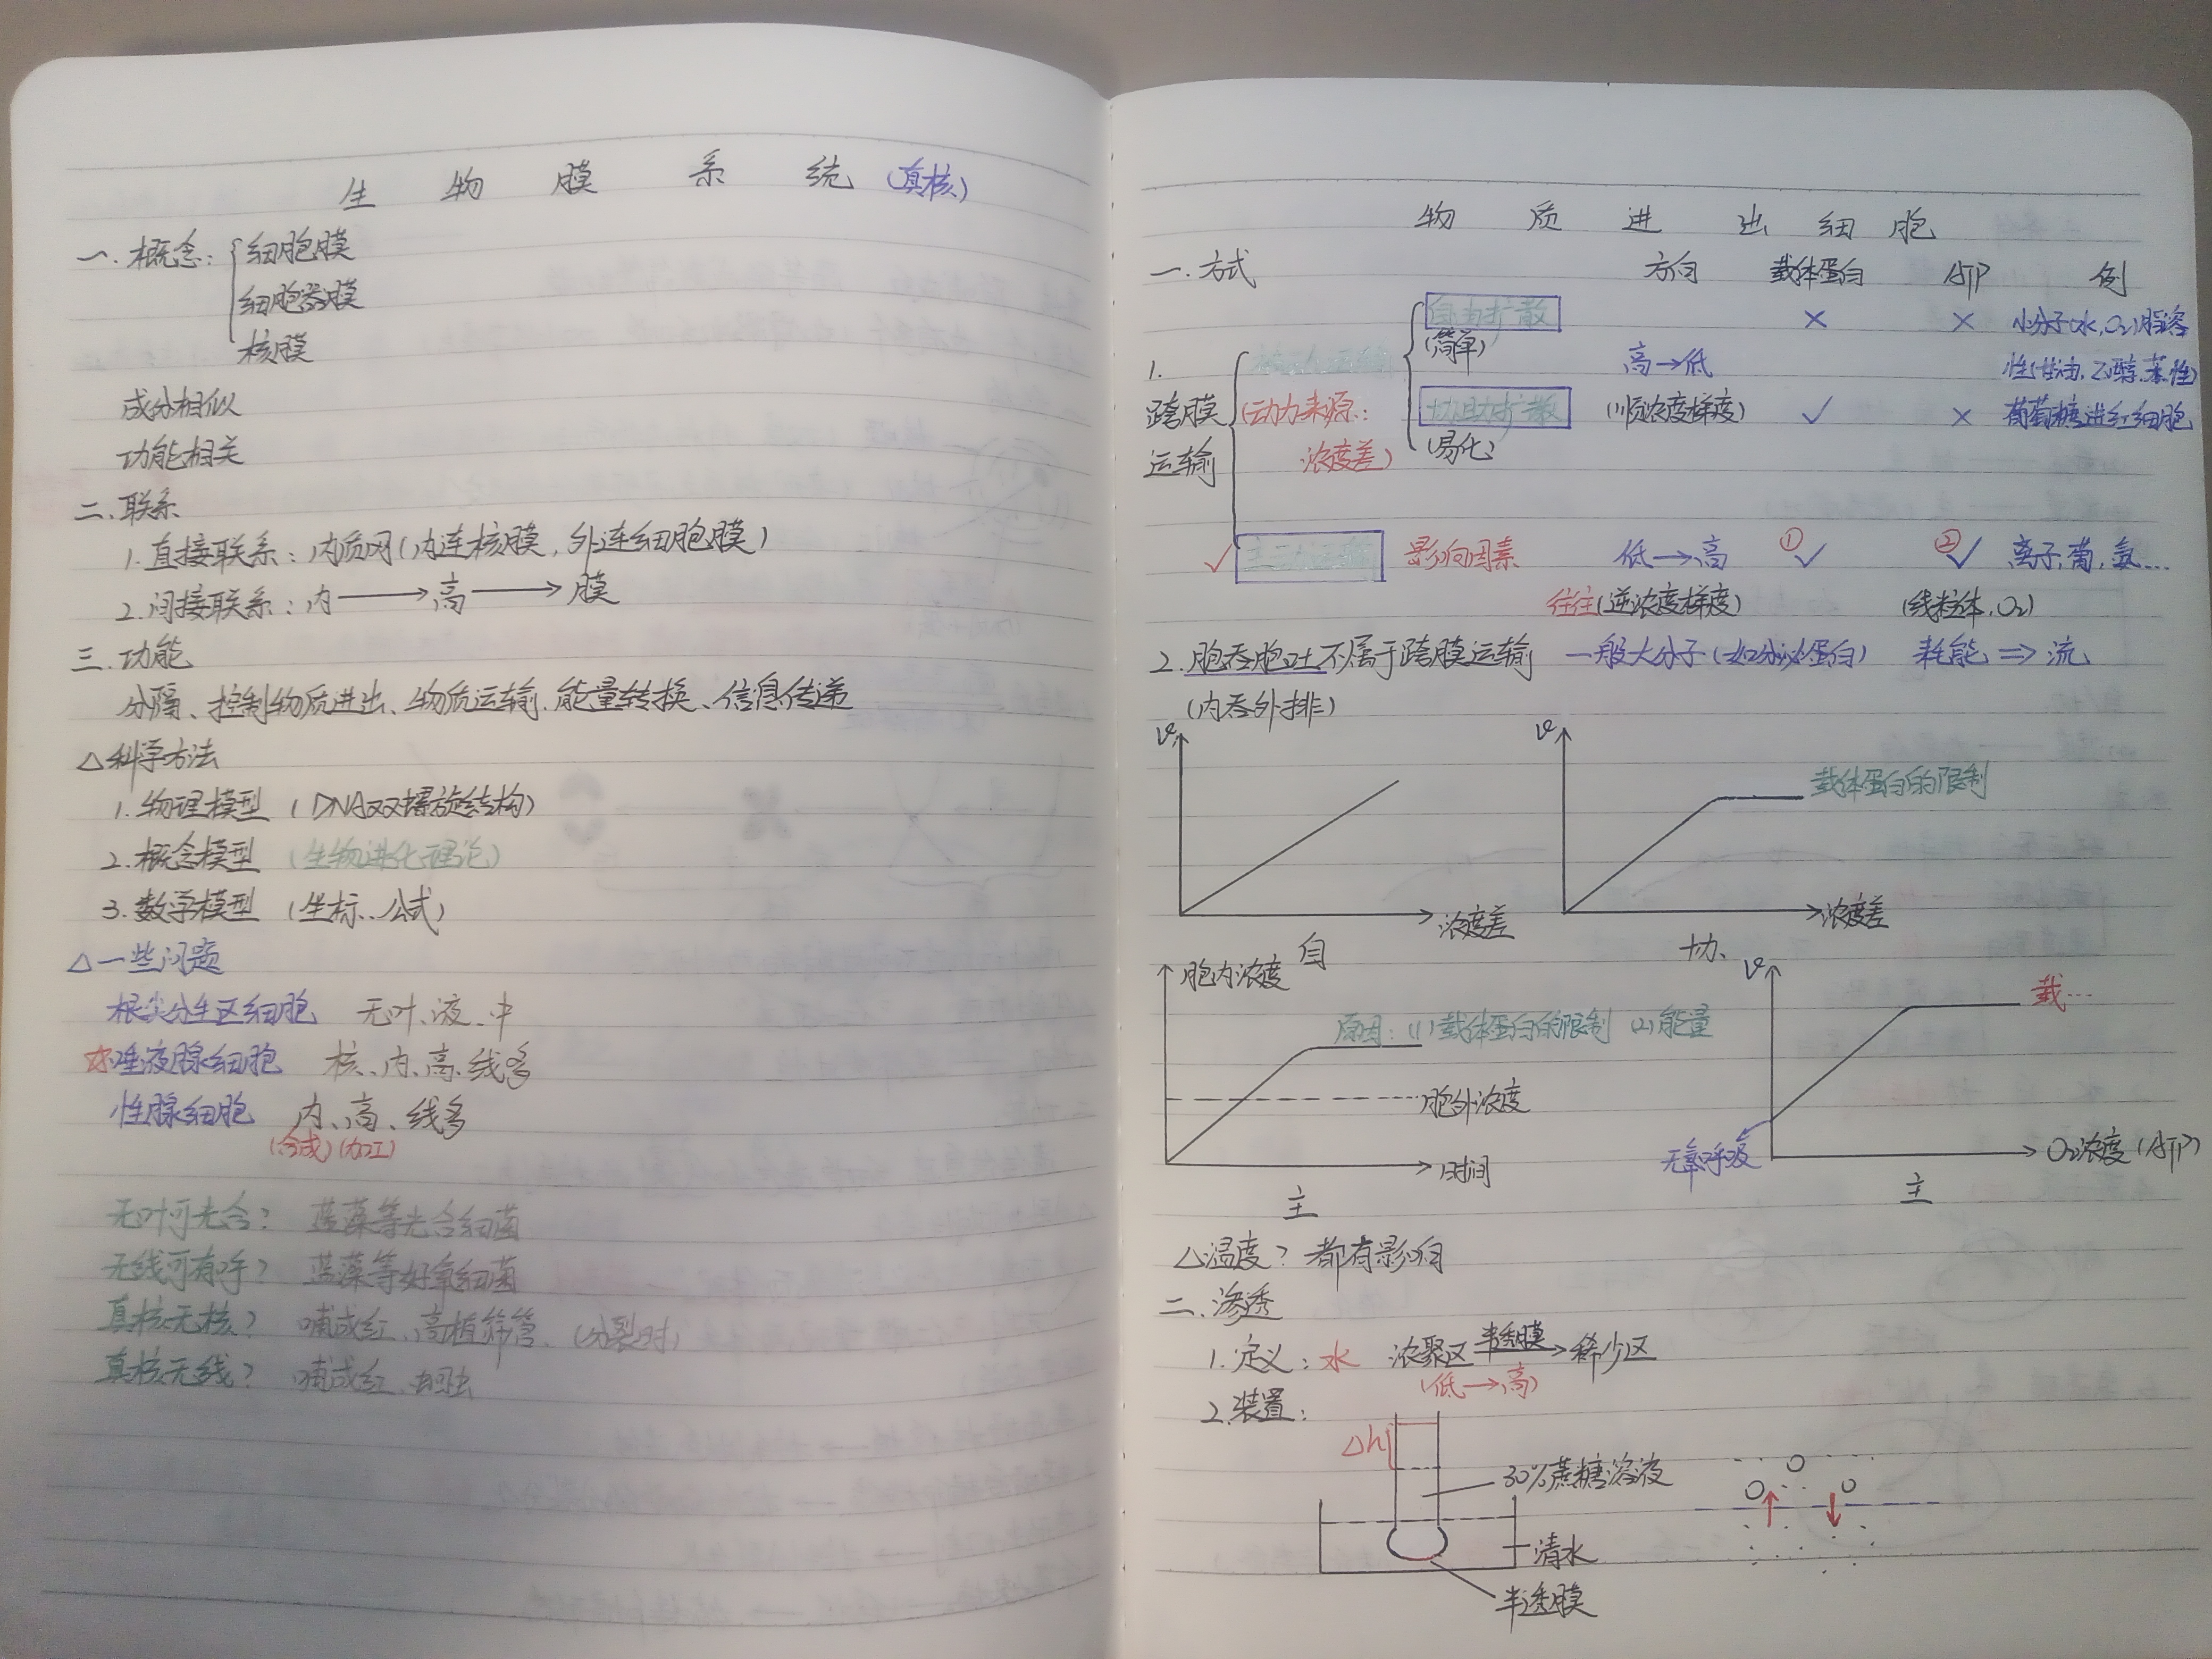 生物膜系统(真核)
一.概念:{细胞膜
细胞器膜
核膜
成分相似
功能相关
二.联系
1.直接联系:内质网(内连核膜,外连细胞膜)
2.间接联系:内→高→膜
三.功能
分隔、控制物质进出、物质运输、能量转换、信息传递
△科学方法
1.物理模型 (DNA双螺旋结构)
2.概念模型 (生物进化理论)
3.数学模型 (坐标、公式)
△一些问题
根尖分生区细胞 无叶、液、中
☆唾液腺细胞 核、内、高、线多
性腺细胞 内、高、线多
(合成)(加工)
无叶可光合? 蓝藻等光合细菌
无线可有呼? 蓝藻等好氧细菌
真核无核? 哺成红、高植筛管、(分裂时)
真核无线? 哺成红、蛔虫
物质进出细胞
一.方式 方向 载体蛋白 ATP 例
自由扩散 × × 小分子(水,O₂)脂溶
(简单)
1. 被动运输 高→低 性(甘油,乙醇,苯,性)
跨膜 (动力来源: 协助扩散 (顺浓度梯度) ✓ × 葡萄糖进红细胞
运输 浓度差) (易化)
✓ 主动运输 影响因素 低→高 ①✓ ②✓ 离子,葡,氨…
往往(逆浓度梯度) (线粒体,O₂)
2.胞吞胞吐不属于跨膜运输 一般大分子(如分泌蛋白) 耗能⇒流
(内吞外排)
v v
载体蛋白的限制
浓度差 浓度差
自 协
胞内浓度 v
载…
原因:(1)载体蛋白的限制 (2)能量
胞外浓度
无氧呼吸 O₂浓度(ATP)
时间
主 主
△温度?都有影响
二.渗透
1.定义:水 浓聚区 半透膜→ 稀少区
(低→高)
2.装置:
△h
30%蔗糖溶液
清水
半透膜